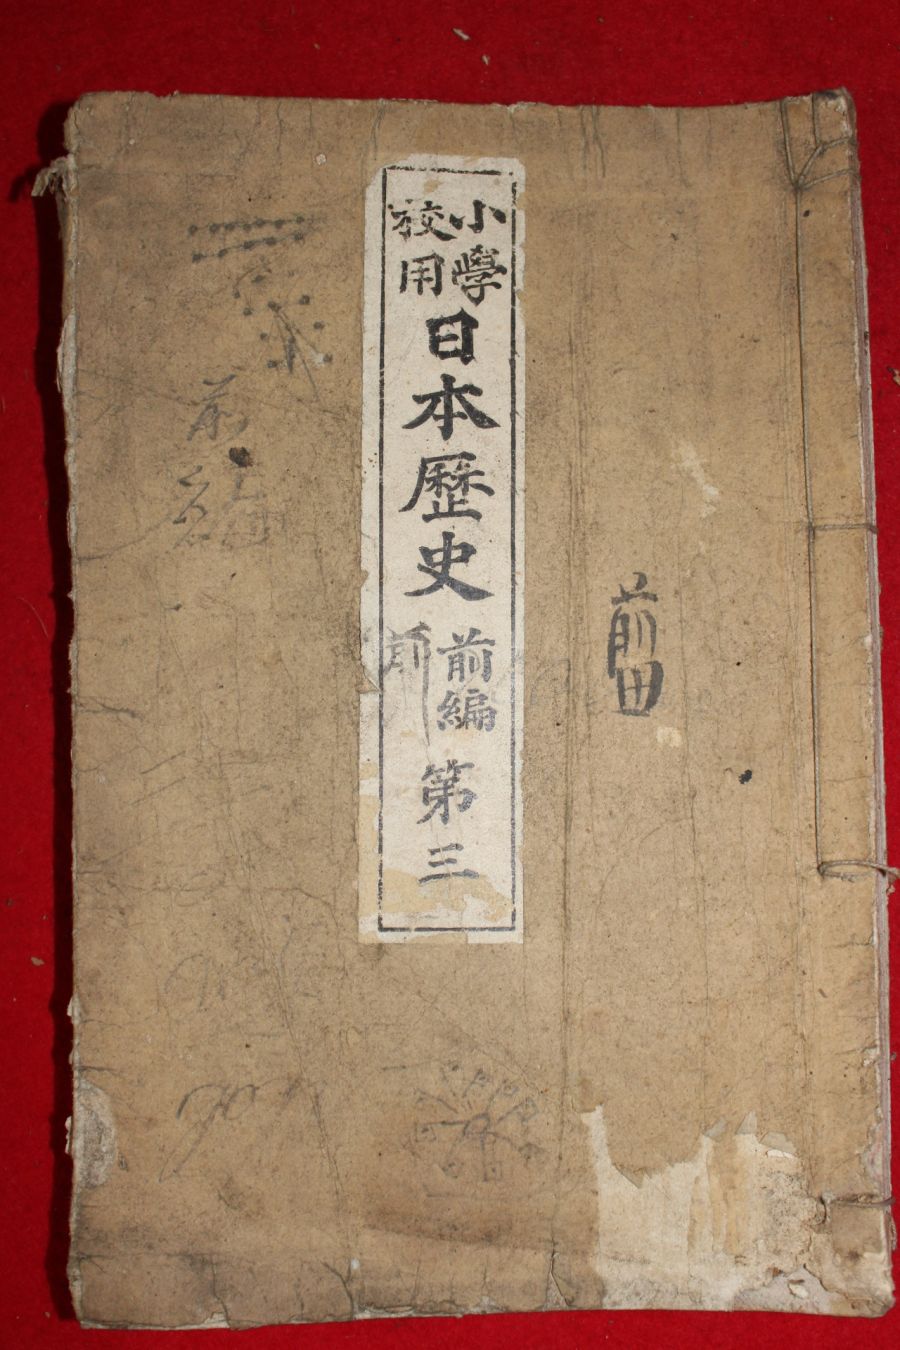 小學
校用
日本歷史
前編
第三
前
前田
前編